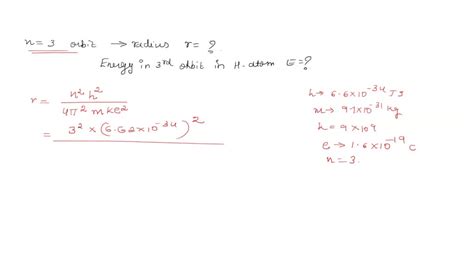 n = 3 orbit → radius r = ?
Energy in 3rd orbit in H-atom E = ?
r = n²h² / 4π² m ke²
= 3² × (6.62×10⁻³⁴)²
h → 6.6×10⁻³⁴ JS
m → 9.1×10⁻³¹ kg
k = 9 × 10⁹
e → 1.6×10⁻¹⁹ C
n = 3.